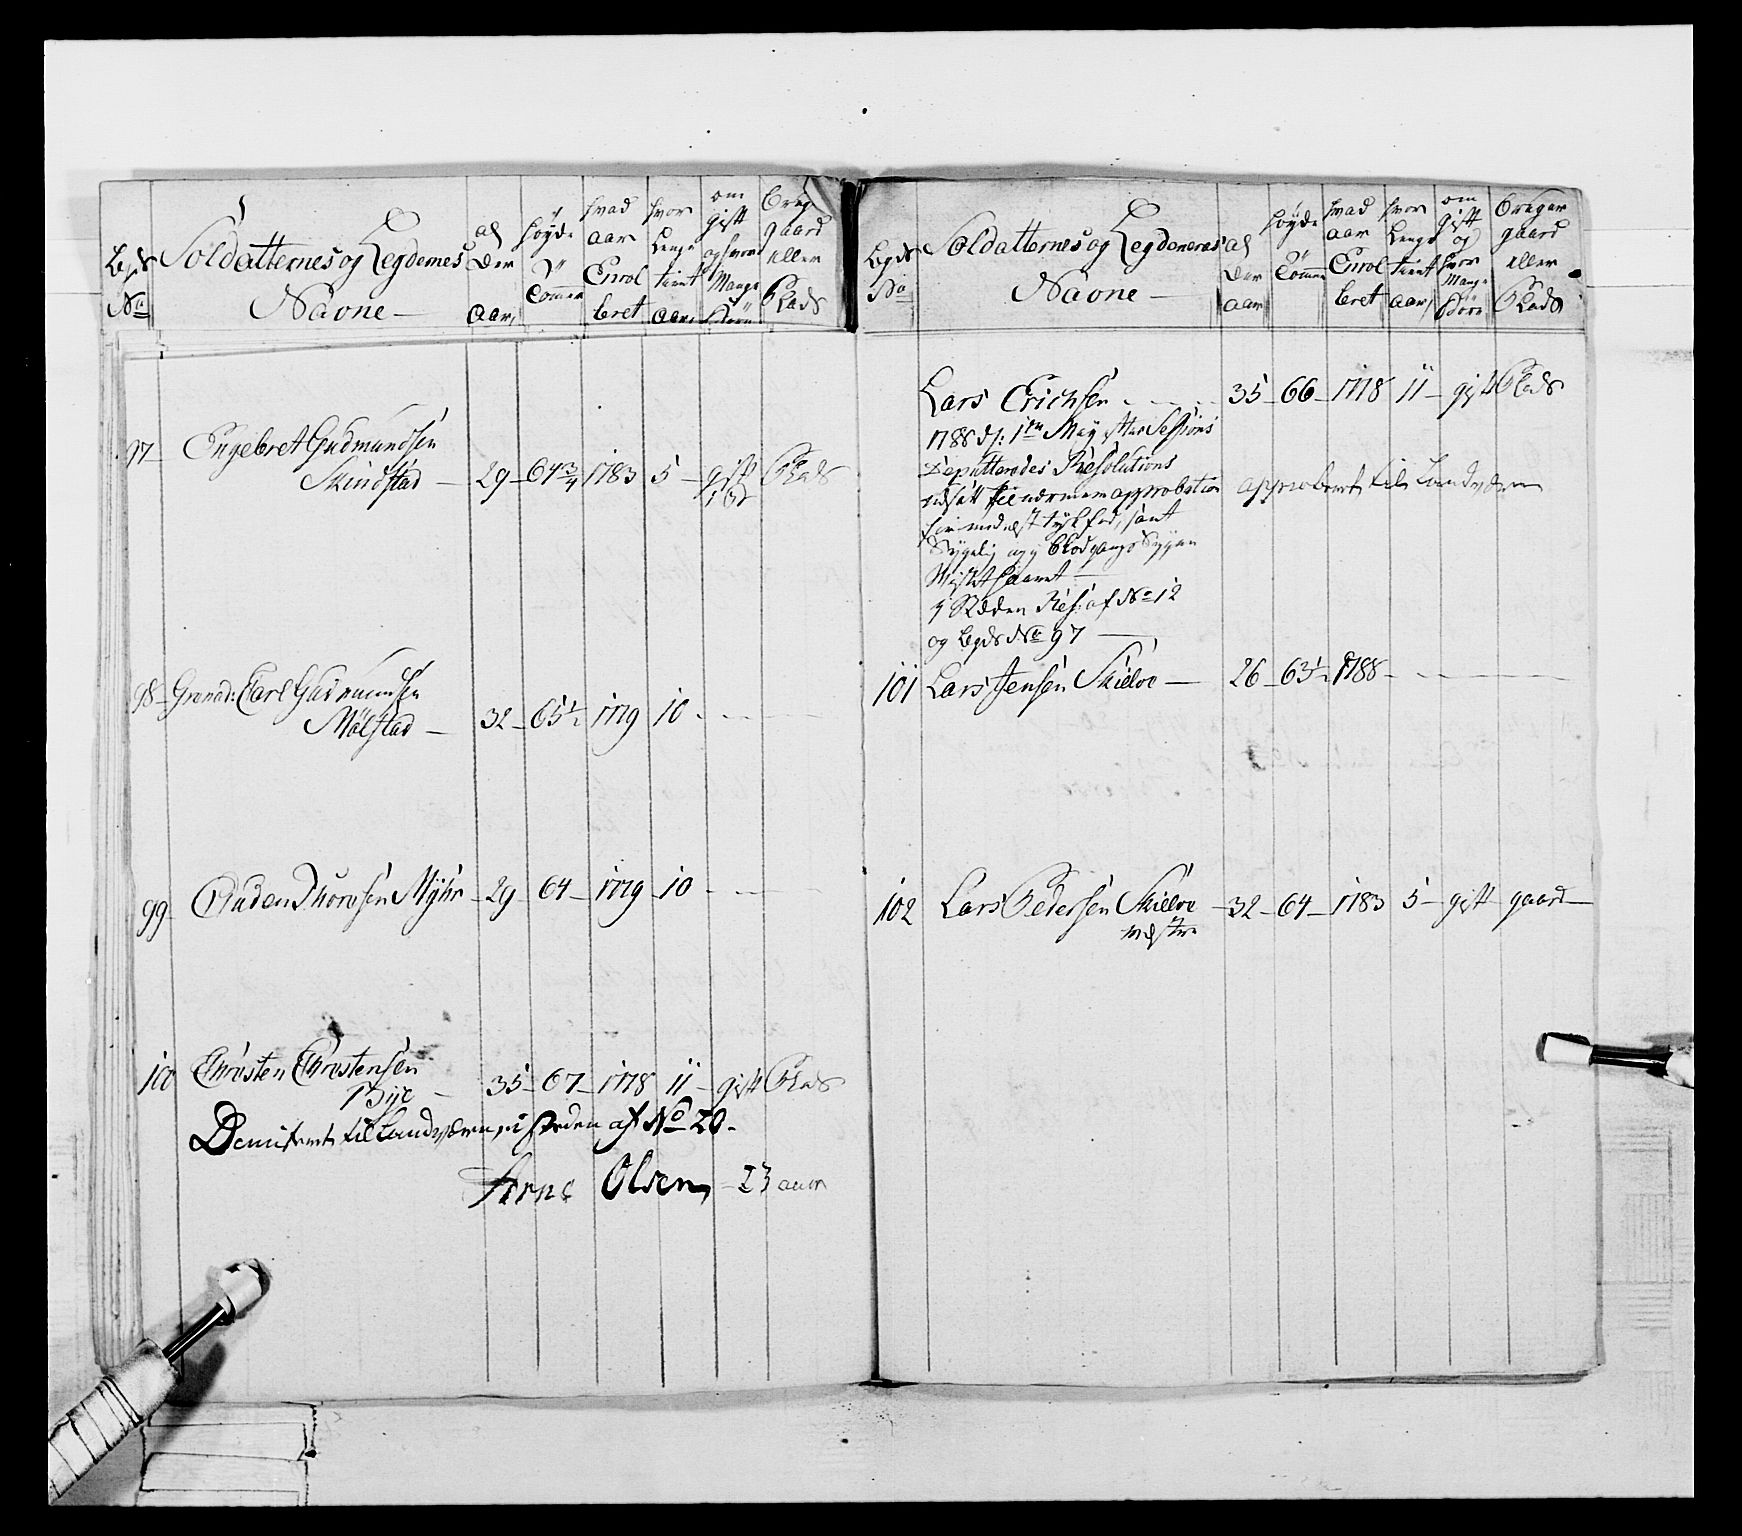 Legds No
Soldatternes og Legdernes
Navne
al
der
Aar
Høyde
Tommer
hvad
aar
Enrol
leret
hvor
Lenge
tient
Aar
om
gift
og hvor
Mange
Børn
gaard
eller
Plads
97 Engebret Gudmundsen
Skindstad 29 64 3/4 1783 5 gift Plads
98 Grenad: Carl Gudmundsen
Mølstad 32 65 1/2 1779 10
99 Auden Thoresen Myhr 29 64 1779 10
100 Throsten Throstensen
Bije 35 67 1778 11 gift Plads
Demitert til Landværn, i steden af No 20.
Arne Olsen, 23 aar
Legds
No
Soldatternes og Legdernes
Navne
al
der
aar
Høyde
Tommer
hvad
aar
Enrol
leret
hvor
Lenge
tient
aar
om
gift
og
hvor
Mange
Børn
gaard
eller
Plads
Lars Erichsen 35 66 1778 11 gift Plads
1788 d: 1te May efter Sessions
Deputteredes Resolutions
udsatt til nærmere approbation approbert til Landværn
samt
Sygelig
Mistet Haaret
i Steden Res: af No 12
og Legds No 97
101 Lars Jensen Skielve 26 63 1/2 1788
102 Lars Pedersen Skielve 32 64 1783 5 gift gaard
vestre